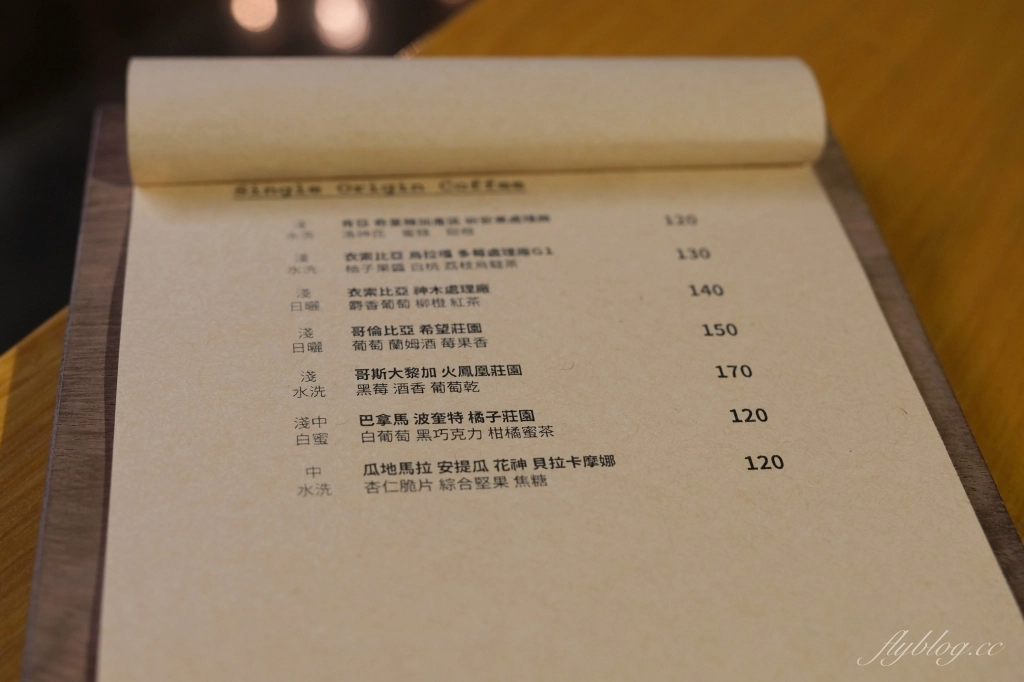 Single Origin Coffee
淺 肯亞 120
水洗 洛神花 蜜糖 甜橙
淺 衣索比亞 烏拉嘎 多莓處理廠G1 130
水洗 柚子果醬 白桃 荔枝烏龍茶
淺 衣索比亞 神木處理廠 140
日曬 爵香葡萄 柳橙 紅茶
淺 哥倫比亞 希望莊園 150
日曬 葡萄 蘭姆酒 莓果香
淺 哥斯大黎加 火鳳凰莊園 170
水洗 黑莓 酒香 葡萄乾
淺中 巴拿馬 波奎特 橘子莊園 120
白蜜 白葡萄 黑巧克力 柑橘蜜茶
中 瓜地馬拉 安提瓜 花神 貝拉卡摩娜 120
水洗 杏仁脆片 綜合堅果 焦糖
flyblog.cc